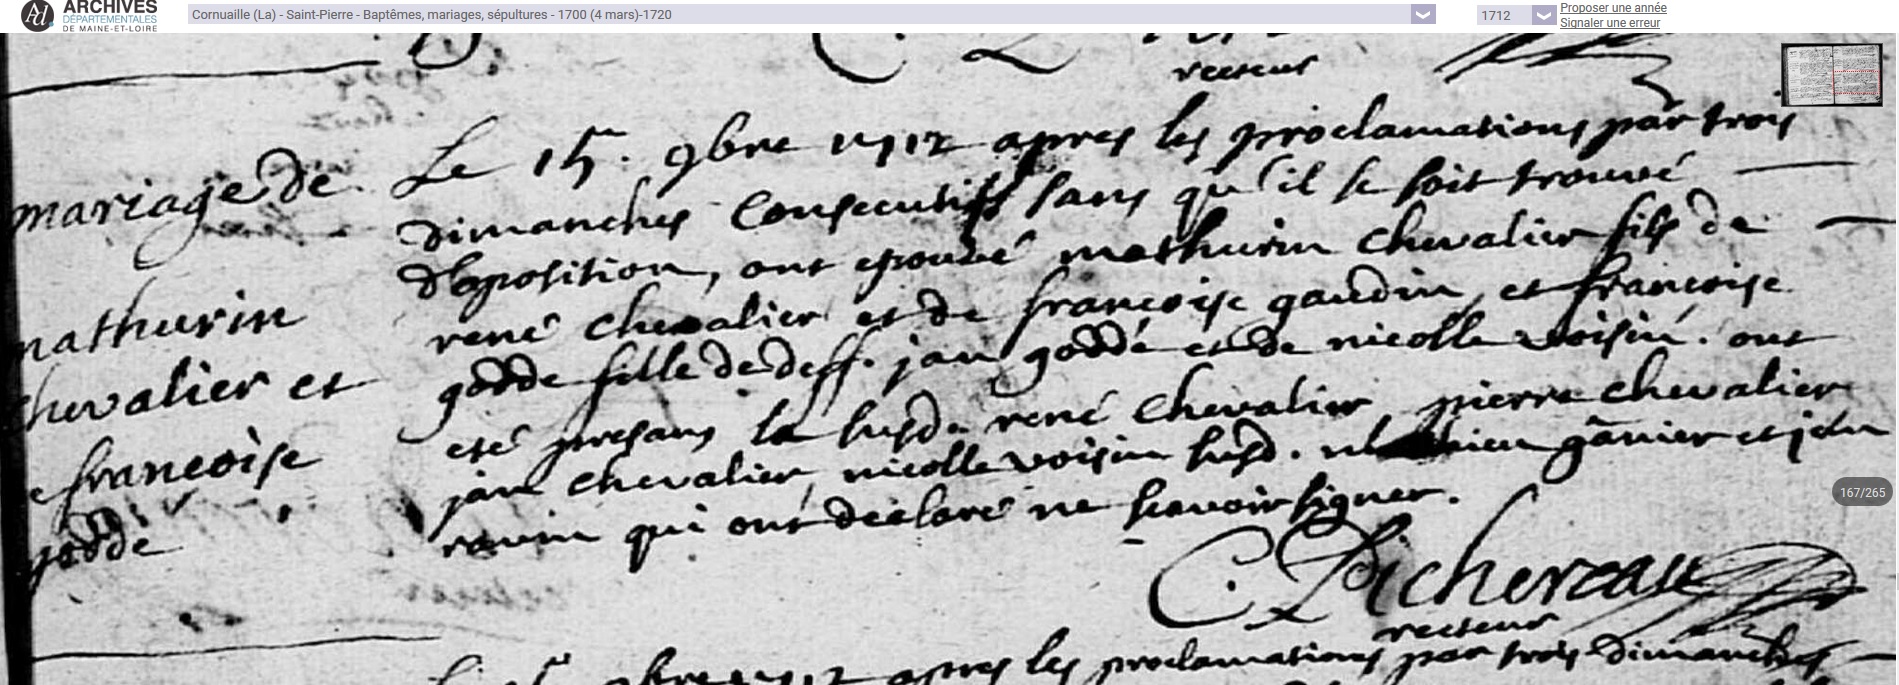 ARCHIVES
DÉPARTEMENTALES
DE MAINE-ET-LOIRE
Cornuaille (La) - Saint-Pierre - Baptêmes, mariages, sépultures - 1700 (4 mars)-1720
1712
Proposer une année
Signaler une erreur
recteur
mariage de
mathurin
chevalier et
francoise
godde
Le 15. 9bre 1712 apres les proclamations par trois
dimanches consecutifs sans qu'il se soit trouvé
d'oposition, ont epousé mathurin chevalier fils de
rené chevalier et de francoise gaudin, et francoise
godde fille de deff. jan goddé et de nicolle voisin. ont
eté presans le susd. rené chevalier, pierre chevalier
jan chevalier, nicolle voisin susd. ganier et jan
ravin qui ont declaré ne scavoir signer.
C. Pichereau
recteur
167/265
Le 9bre 1712 apres les proclamations par trois dimanches